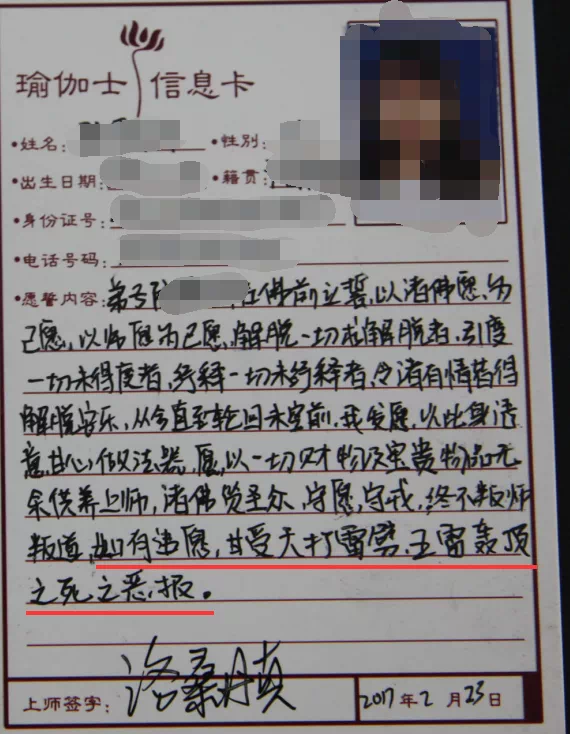 瑜伽士 信息卡
•姓名: •性别:
•出生日期: •籍贯:
•身份证号:
•电话号码:
•愿誓内容: 弟子 在佛前立誓,以诸佛愿,为
己愿,以师愿为己愿,解脱一切未解脱者,引度
一切未得度者,绔释一切未绔释者,令诸有情皆得
解脱安乐,从今直至轮回未空前,我发愿,以此身语
意,甘心做法器,愿以一切财物及宝贵物品无
余供养上师,诸佛贤圣众,守愿,守戒,终不叛师
叛道,如有违愿,甘受天打雷劈,五雷轰顶
之死之恶报。
上师签字: 洛桑丹真 2017年2月23日